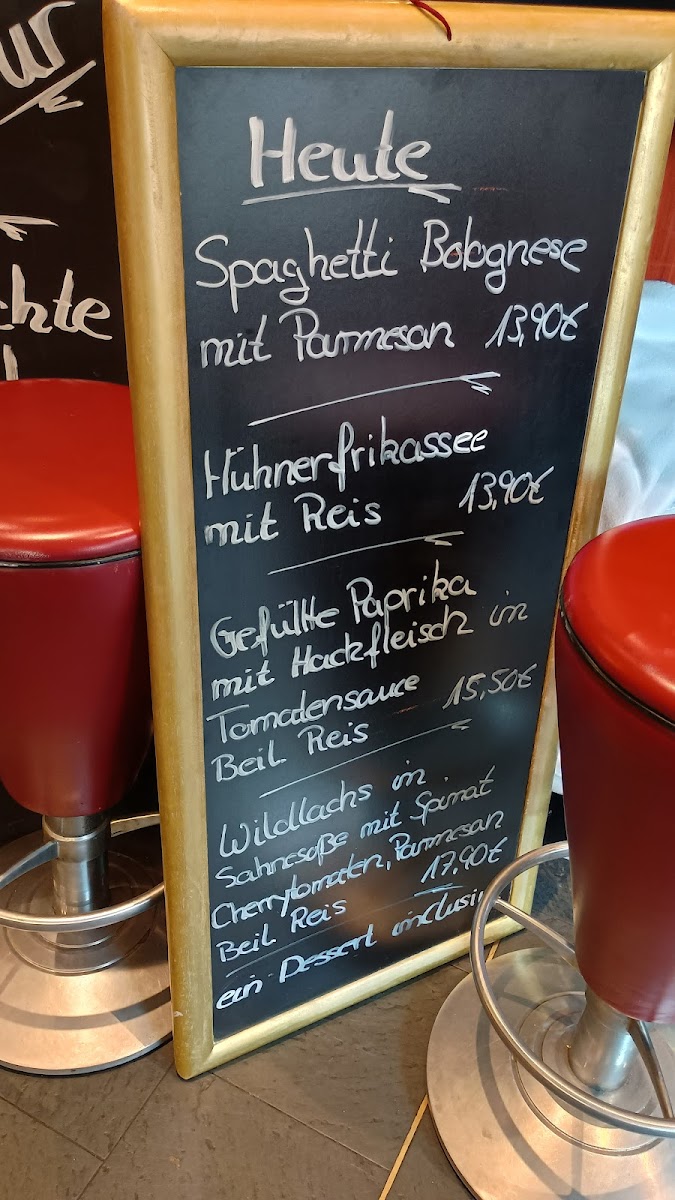 Heute
Spaghetti Bolognese
mit Parmesan 13,90€
Hühnerfrikassee
mit Reis 13,90€
Gefüllte Paprika
mit Hackfleisch in
Tomatensauce 15,50€
Beil. Reis
Wildlachs in
Sahnesoße mit Spinat
Cherrytomaten, Parmesan
Beil. Reis 17,90€
ein Dessert inclusi